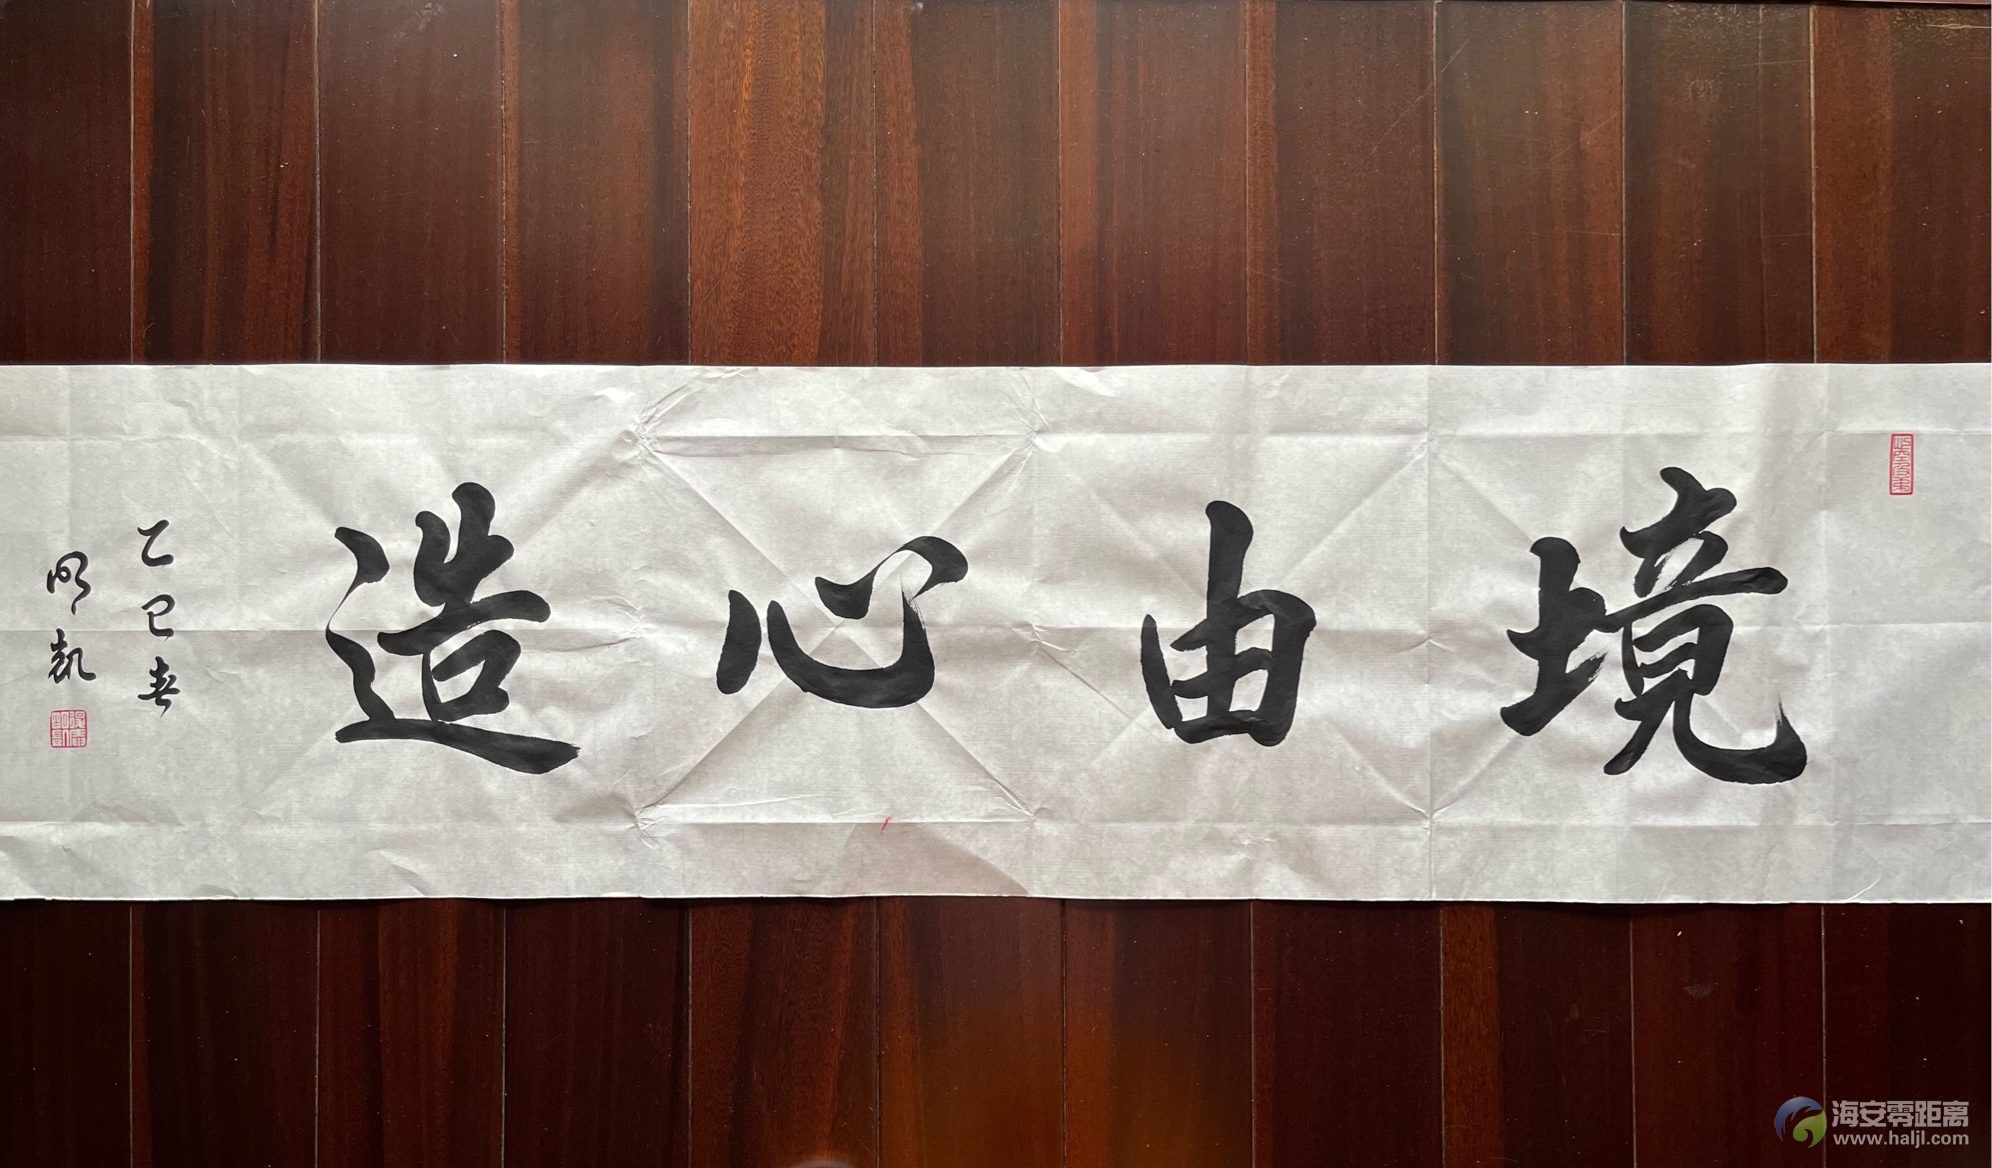 境由心造
乙巳春
明凱
海安零距离
www.haljl.com